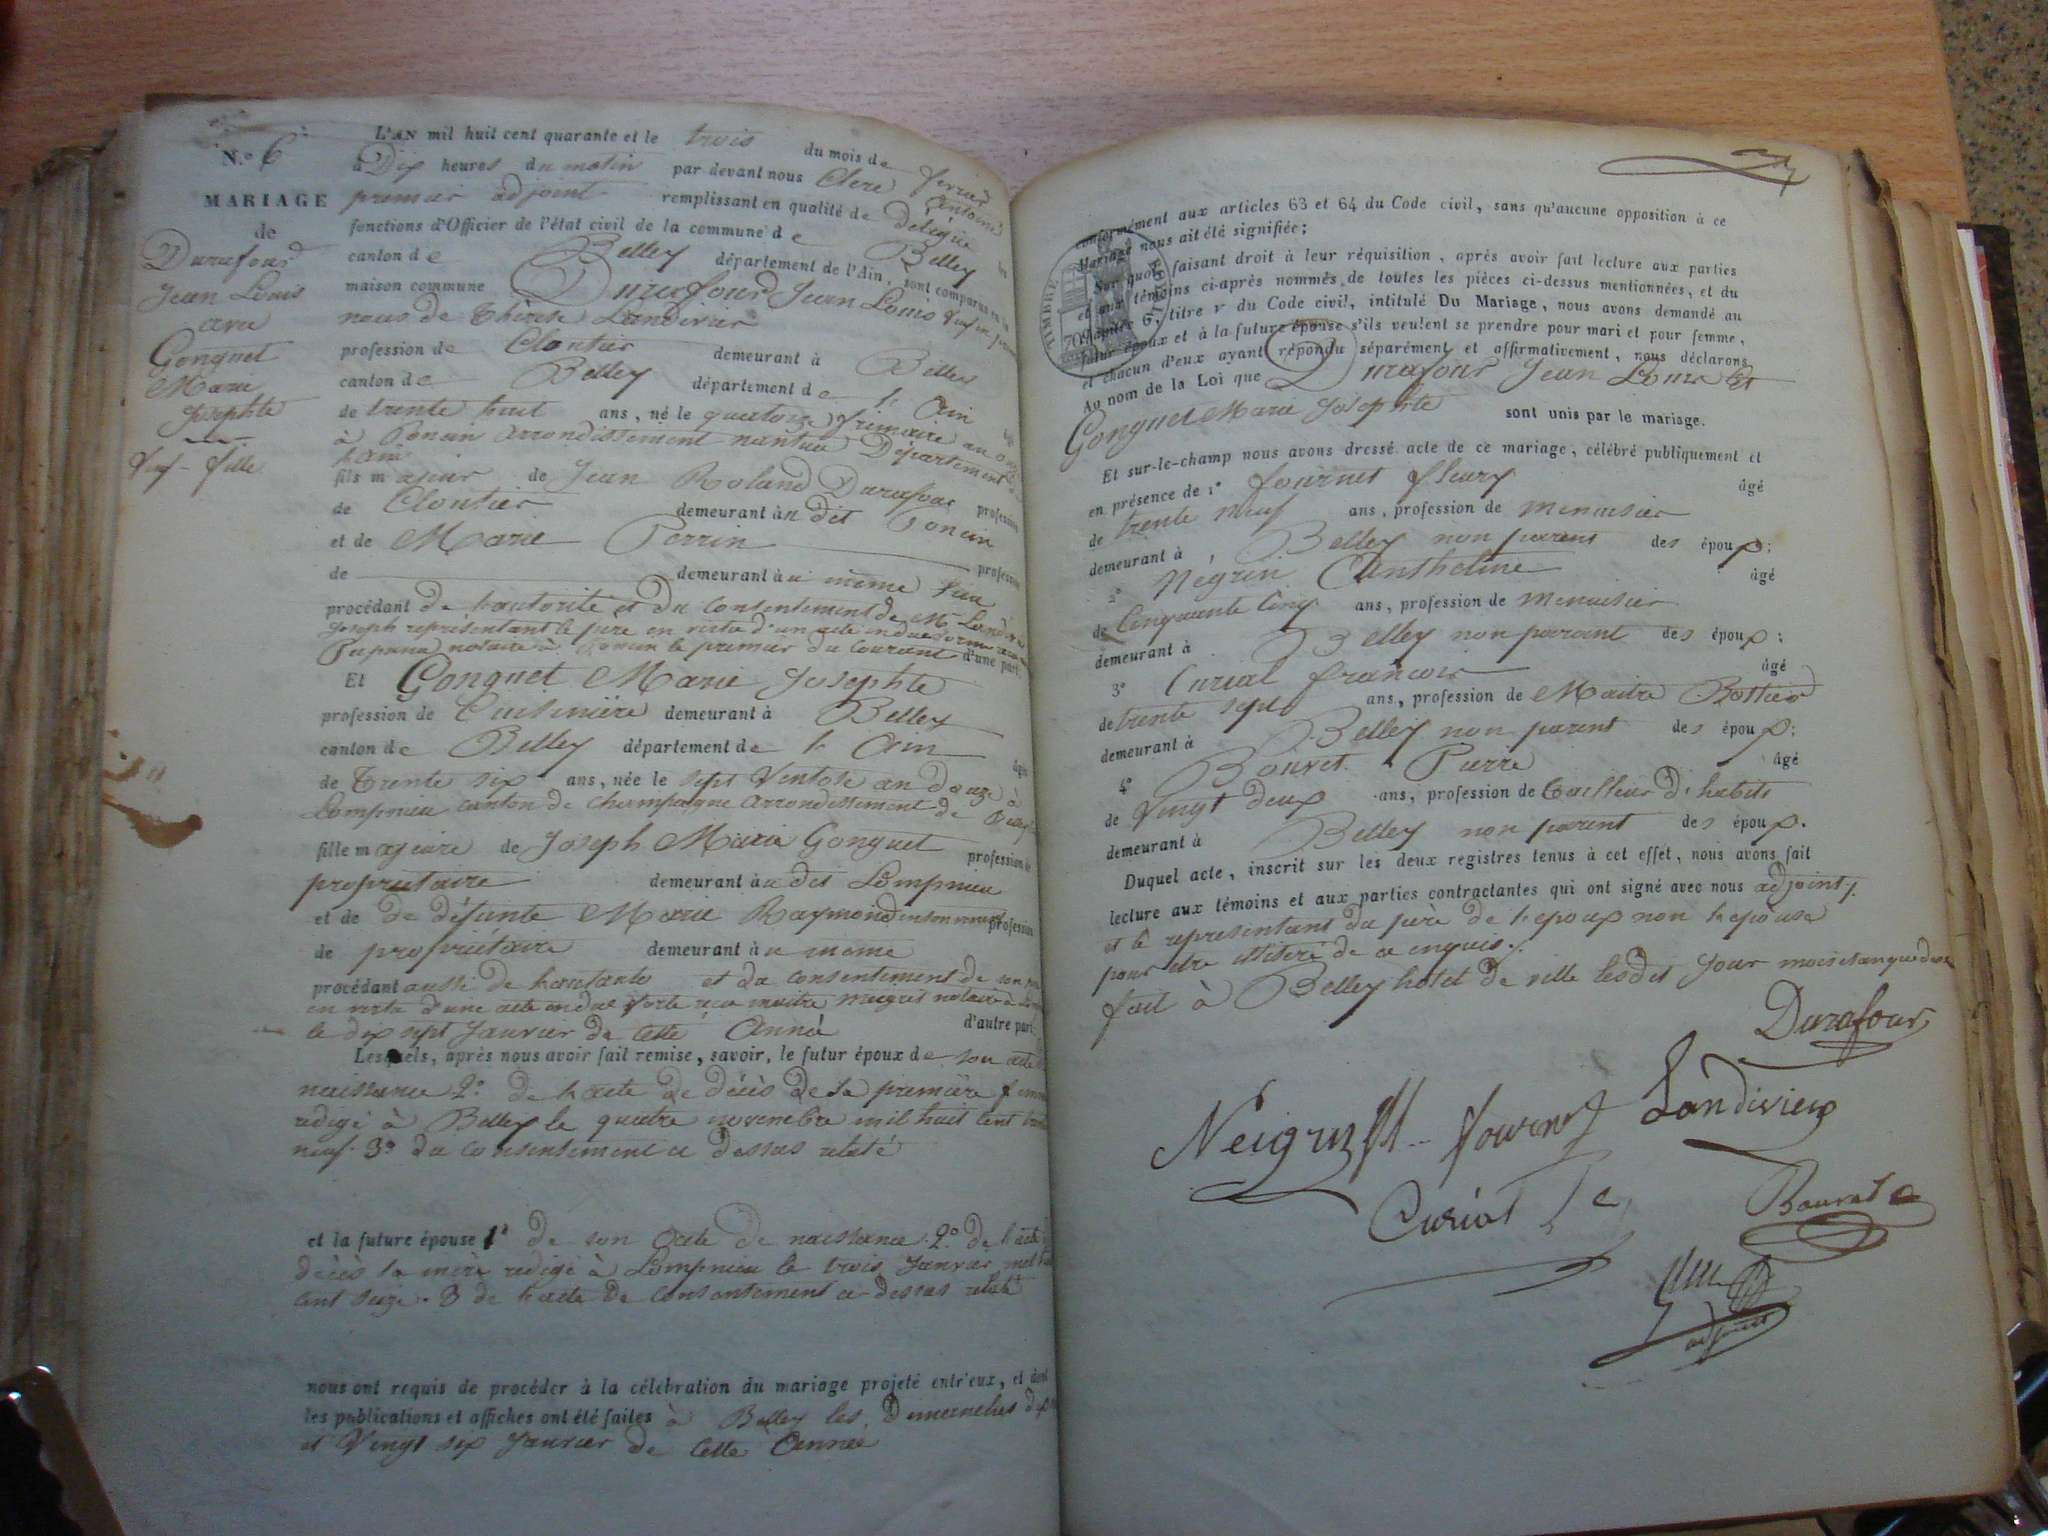 N.º 6
MARIAGE
de
Durafour
Jean Louis
avec
Gonguet
Marie
Josephte
Veuf - fille
L'AN mil huit cent quarante et le trois du mois de février
à Dix heures du matin par devant nous Clerc Antoine
premier adjoint remplissant en qualité de Délégué les
fonctions d'Officier de l'état civil de la commune de Belley
canton de Belley département de l'Ain, sont comparus en la
maison commune Durafour Jean Louis veuf en
noces de Thérèse Landivier
profession de Cloutier demeurant à Belley
canton de Belley département de l'Ain âgé
de trente huit ans, né le quatorze frimaire an onze
à Poncin arrondissement nantua Département de
l'ain
fils majeur de Jean Roland Durafour profession
de Cloutier demeurant au dit Poncin
et de Marie Perrin profession
de demeurant au même lieu
procédant de l'autorité et du consentement de Mr Landivier
Joseph représentant le père en vertu d'un acte en due forme
notaire à Poncin le premier du courant d'une part.
Et Gonguet Marie Josephte
profession de Cuisinière demeurant à Belley
canton de Belley département de l'Ain âgée
de Trente six ans, née le sept Ventose an douze à
Lompnieu canton de Champagne arrondissement de Belley
fille majeure de Joseph Marie Gonguet profession de
propriétaire demeurant au dit Lompnieu
et de de défunte Marie Raymond en son vivant profession
de propriétaire demeurant au même
procédant aussi de l'autorité et du consentement de son père
en vertu d'une acte en due forte reçu maitre meigret notaire à
le dix sept Janvier de cette Année d'autre part.
Lesquels, après nous avoir fait remise, savoir, le futur époux de son acte de
naissance 2º de l'acte de décès de sa première femme
rédigé à Belley le quatre novembre mil huit cent trente
neuf. 3º du consentement ci dessus relaté
et la future épouse 1º de son acte de naissance. 2º de l'acte de
décès sa mère rédigé à Lompnieu le trois Janvier mil huit
cent seize. 3 de l'acte de consentement ci-dessus relaté
nous ont requis de procéder à la célébration du mariage projeté entr'eux, et dont
les publications et affiches ont été faites à Belley les Dimanches dix neuf
et Vingt six Janvier de cette Année
conformément aux articles 63 et 64 du Code civil, sans qu'aucune opposition à ce
Mariage nous ait été signifiée;
Sur quoi, faisant droit à leur réquisition, après avoir fait lecture aux parties
et aux témoins ci-après nommés, de toutes les pièces ci-dessus mentionnées, et du
chapitre 6, titre v du Code civil, intitulé Du Mariage, nous avons demandé au
futur époux et à la future épouse s'ils veulent se prendre pour mari et pour femme,
et chacun d'eux ayant répondu séparément et affirmativement, nous déclarons
Au nom de la Loi que Durafour Jean Louis Et
Gonguet Marie Josephte sont unis par le mariage.
TIMBRE
70
Et sur-le-champ nous avons dressé acte de ce mariage, célébré publiquement et
en présence de 1º fournet fleury âgé
de trente neuf ans, profession de menuisier
demeurant à Belley non parent des époux;
2º Négrin Anthelme âgé
de Cinquante Cinq ans, profession de menuisier
demeurant à Belley non parent des époux;
3º Curial françois âgé
de trente sept ans, profession de Maitre Bottier
demeurant à Belley non parent des époux;
4º Bouvet Pierre âgé
de Vingt deux ans, profession de Tailleur d'habits
demeurant à Belley non parent des époux.
Duquel acte, inscrit sur les deux registres tenus à cet effet, nous avons fait
lecture aux témoins et aux parties contractantes qui ont signé avec nous adjoint
et le représentant du père de l'époux non l'épouse
pour être illitéré de ce enquis.
fait à Belley hotel de ville lesdit jour mois et an que dessus
Durafour
Neigrin fournet Landivier
Curial
Bouvet
adjoint